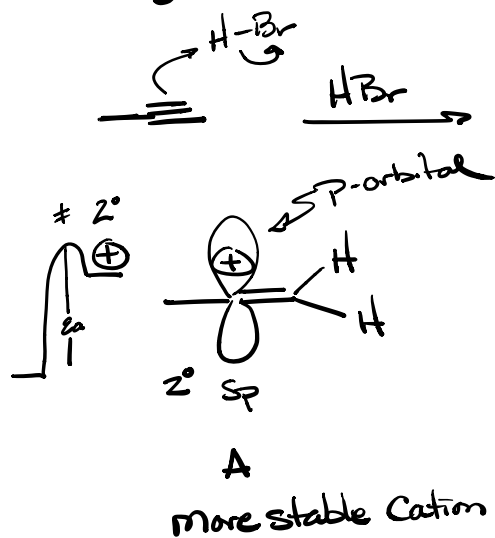 H-Br
HBr
P-orbital
≠ 2°
+
+
H
Ea
H
2° Sp
A
more stable Cation